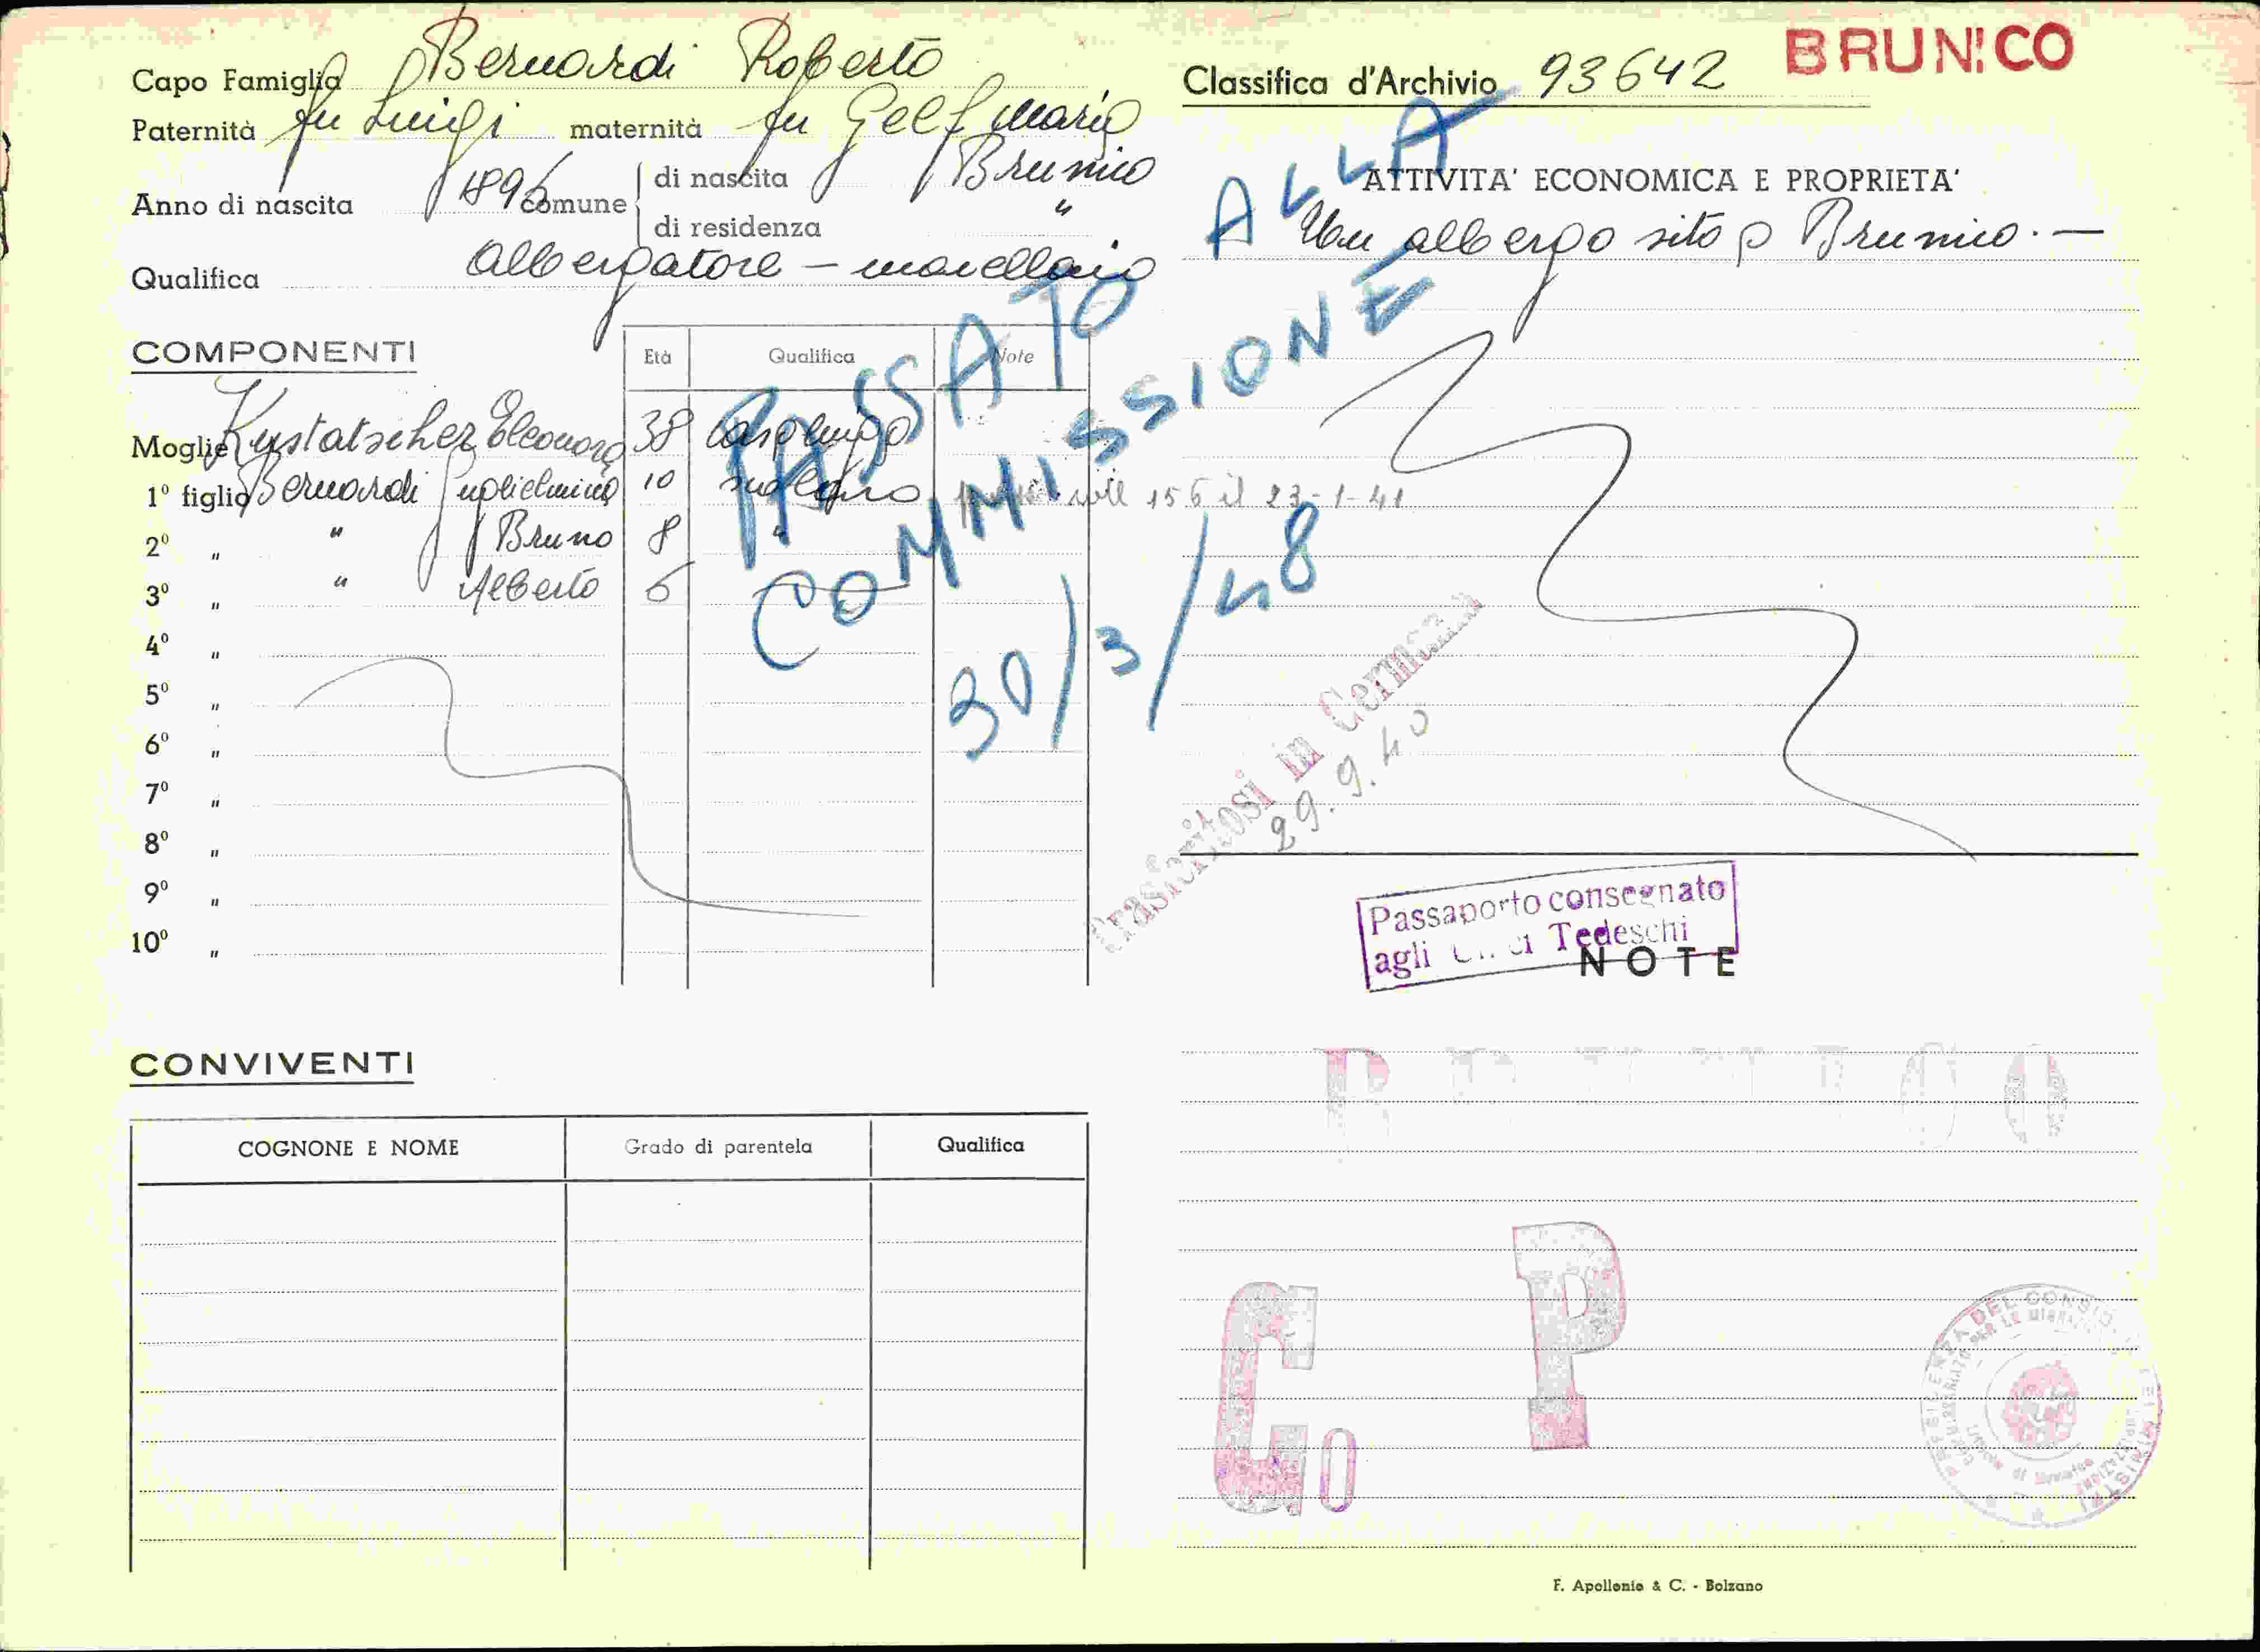 Capo Famiglia Bernardi Roberto
Paternità fu Luigi maternità fu Gelf Maria
Anno di nascita 1896 comune di nascita Brunico
di residenza "
Qualifica albergatore – macellaio
COMPONENTI
Età Qualifica Note
Moglie Kustatscher Eleonora 38 casalinga
1º figlio Bernardi Guglielmina 10 scolara 156 il 23-1-41
2º " " Bruno 8 "
3º " " Alberto 6
4º "
5º "
6º "
7º "
8º "
9º "
10º "
CONVIVENTI
COGNONE E NOME Grado di parentela Qualifica
Classifica d'Archivio 93642 BRUNICO
ATTIVITA' ECONOMICA E PROPRIETA'
Un albergo sito a Brunico. —
PASSATO ALLA
COMMISSIONE
30/3/48
Trasferitosi in Germania
29.9.40
Passaporto consegnato
agli Tedeschi
NOTE
BRUNICO
G0 P
PRESIDENZA DEL CONSIGLIO DEI MINISTRI
F. Apollonio & C. - Bolzano